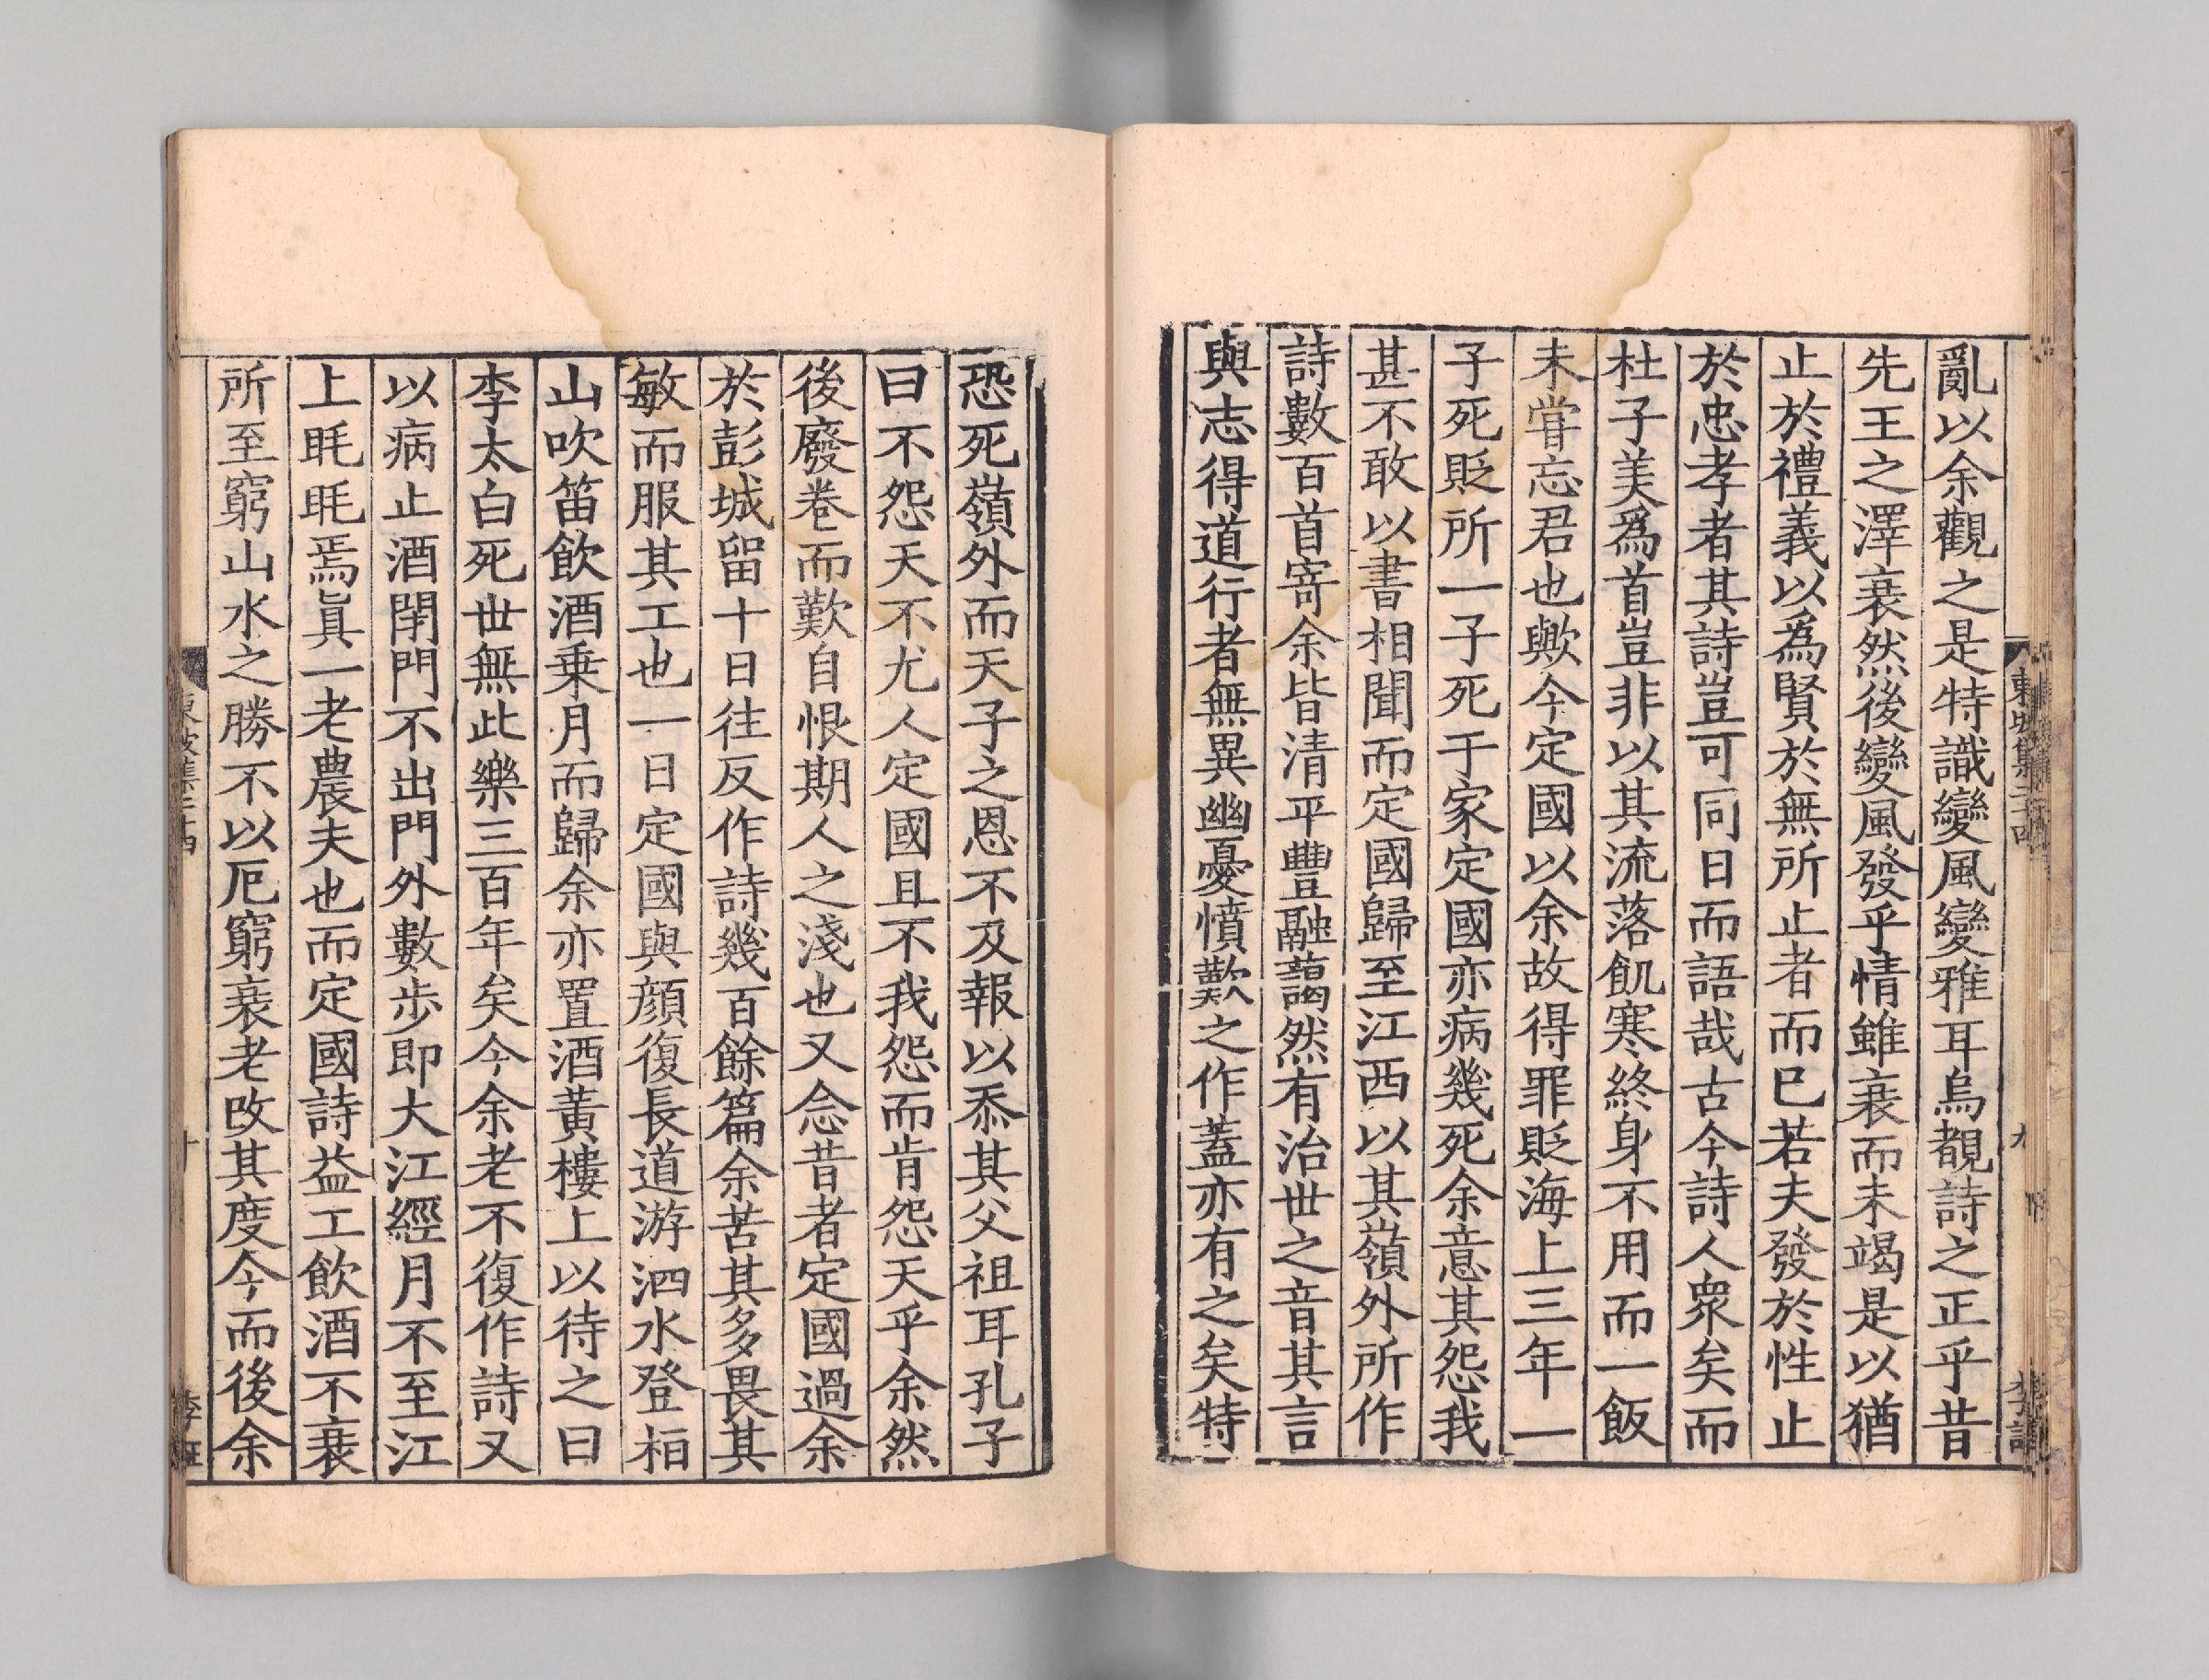 亂以余觀之是特識變風變雅耳烏覩詩之正乎昔
先王之澤衰然後變風發乎情雖衰而未竭是以猶
止於禮義以為賢於無所止者而已若夫發於性止
於忠孝者其詩豈可同日而語哉古今詩人衆矣而
杜子美爲首豈非以其流落飢寒終身不用而一飯
未甞忘君也歟今定國以余故得罪貶海上三年一
子死貶所一子死于家定國亦病幾死余意其怨我
甚不敢以書相聞而定國歸至江西以其嶺外所作
詩數百首寄余皆清平豐融藹然有治世之音其言
與志得道行者無異幽憂憤歎之作蓋亦有之矣特
恐死嶺外而天子之恩不及報以忝其父祖耳孔子
曰不怨天不尤人定國且不我怨而肯怨天乎余然
後廢卷而歎自恨期人之淺也又念昔者定國過余
於彭城留十日往反作詩幾百餘篇余苦其多畏其
敏而服其工也一日定國與顏復長道游泗水登桓
山吹笛飲酒乗月而歸余亦置酒黃樓上以待之曰
李太白死世無此樂三百年矣今余老不復作詩又
以病止酒閉門不出門外數歩即大江經月不至江
上眊眊焉眞一老農夫也而定國詩益工飲酒不衰
所至窮山水之勝不以厄窮衰老改其度今而後余
東坡集二十四
十